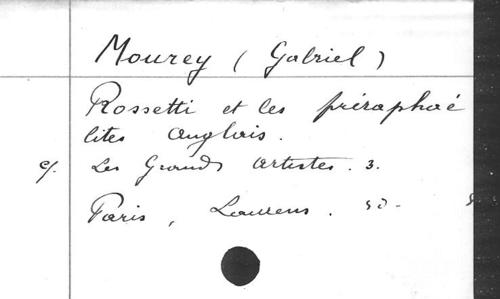 Mourey (Gabriel)
Rossetti et les préraphaé
lites anglais.
c/. Les Grands Artistes. 3.
Paris, Laurens. sd.